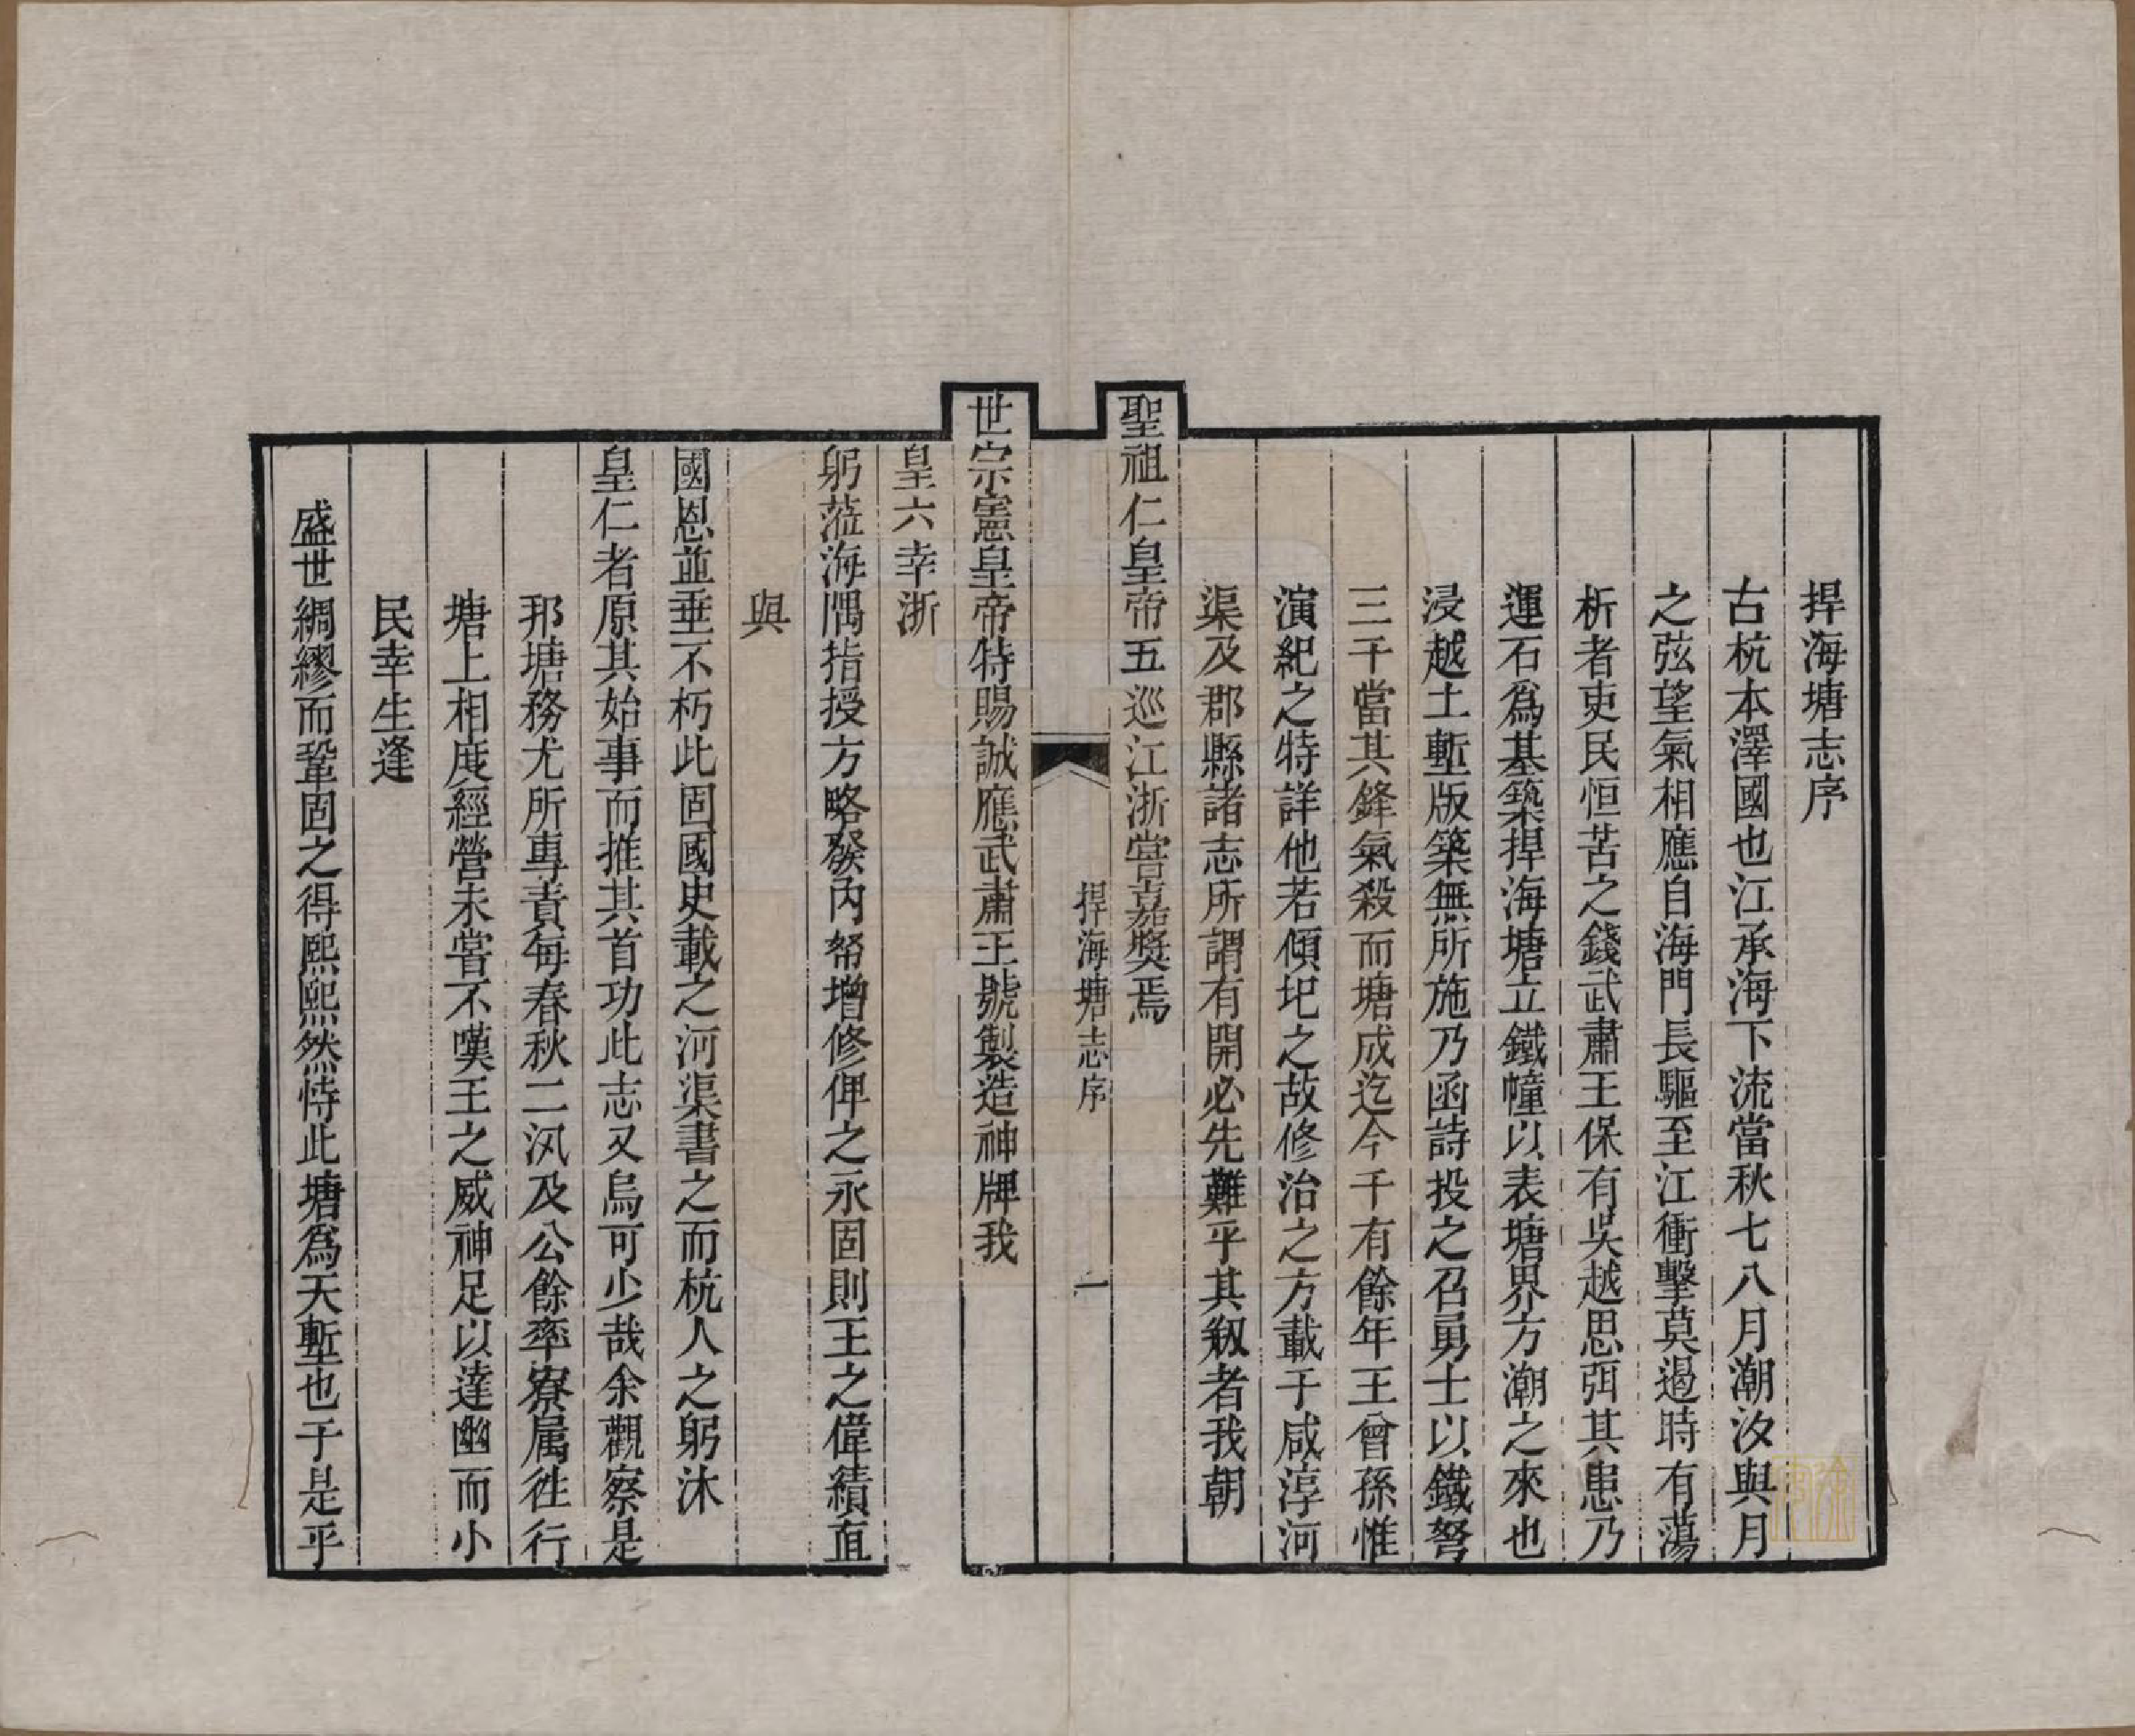 捍海塘志序
古杭本澤國也江承海下流當秋七八月潮汐與月
之弦望氣相應自海門長驅至江衝擊莫遏時有蕩
析者吏民恒苦之錢武肅王保有吳越思弭其患乃
運石爲基築捍海塘立鐵幢以表塘界方潮之來也
浸越土塹版築無所施乃函詩投之召勇士以鐵弩
三千當其鋒氣殺而塘成迄今千有餘年王曾孫惟
演紀之特詳他若傾圮之故修治之方載于咸淳河
渠及郡縣諸志所謂有開必先難乎其剏者我朝
聖祖仁皇帝五巡江浙嘗嘉獎焉
捍海塘志序
一
世宗憲皇帝特賜誠應武肅王號製造神牌我
皇六幸浙
躬蒞海隅指授方略發內帑增修俾之永固則王之偉績直
與
國恩並垂不朽此固國史載之河渠書之而杭人之躬沐
皇仁者原其始事而推其首功此志又烏可少哉余觀察是
邦塘務尤所專責每春秋二汛及公餘率寮属徃行
塘上相度經營未嘗不嘆王之威神足以達幽而小
民幸生逢
盛世綢繆而鞏固之得熙熙然恃此塘爲天塹也于是乎